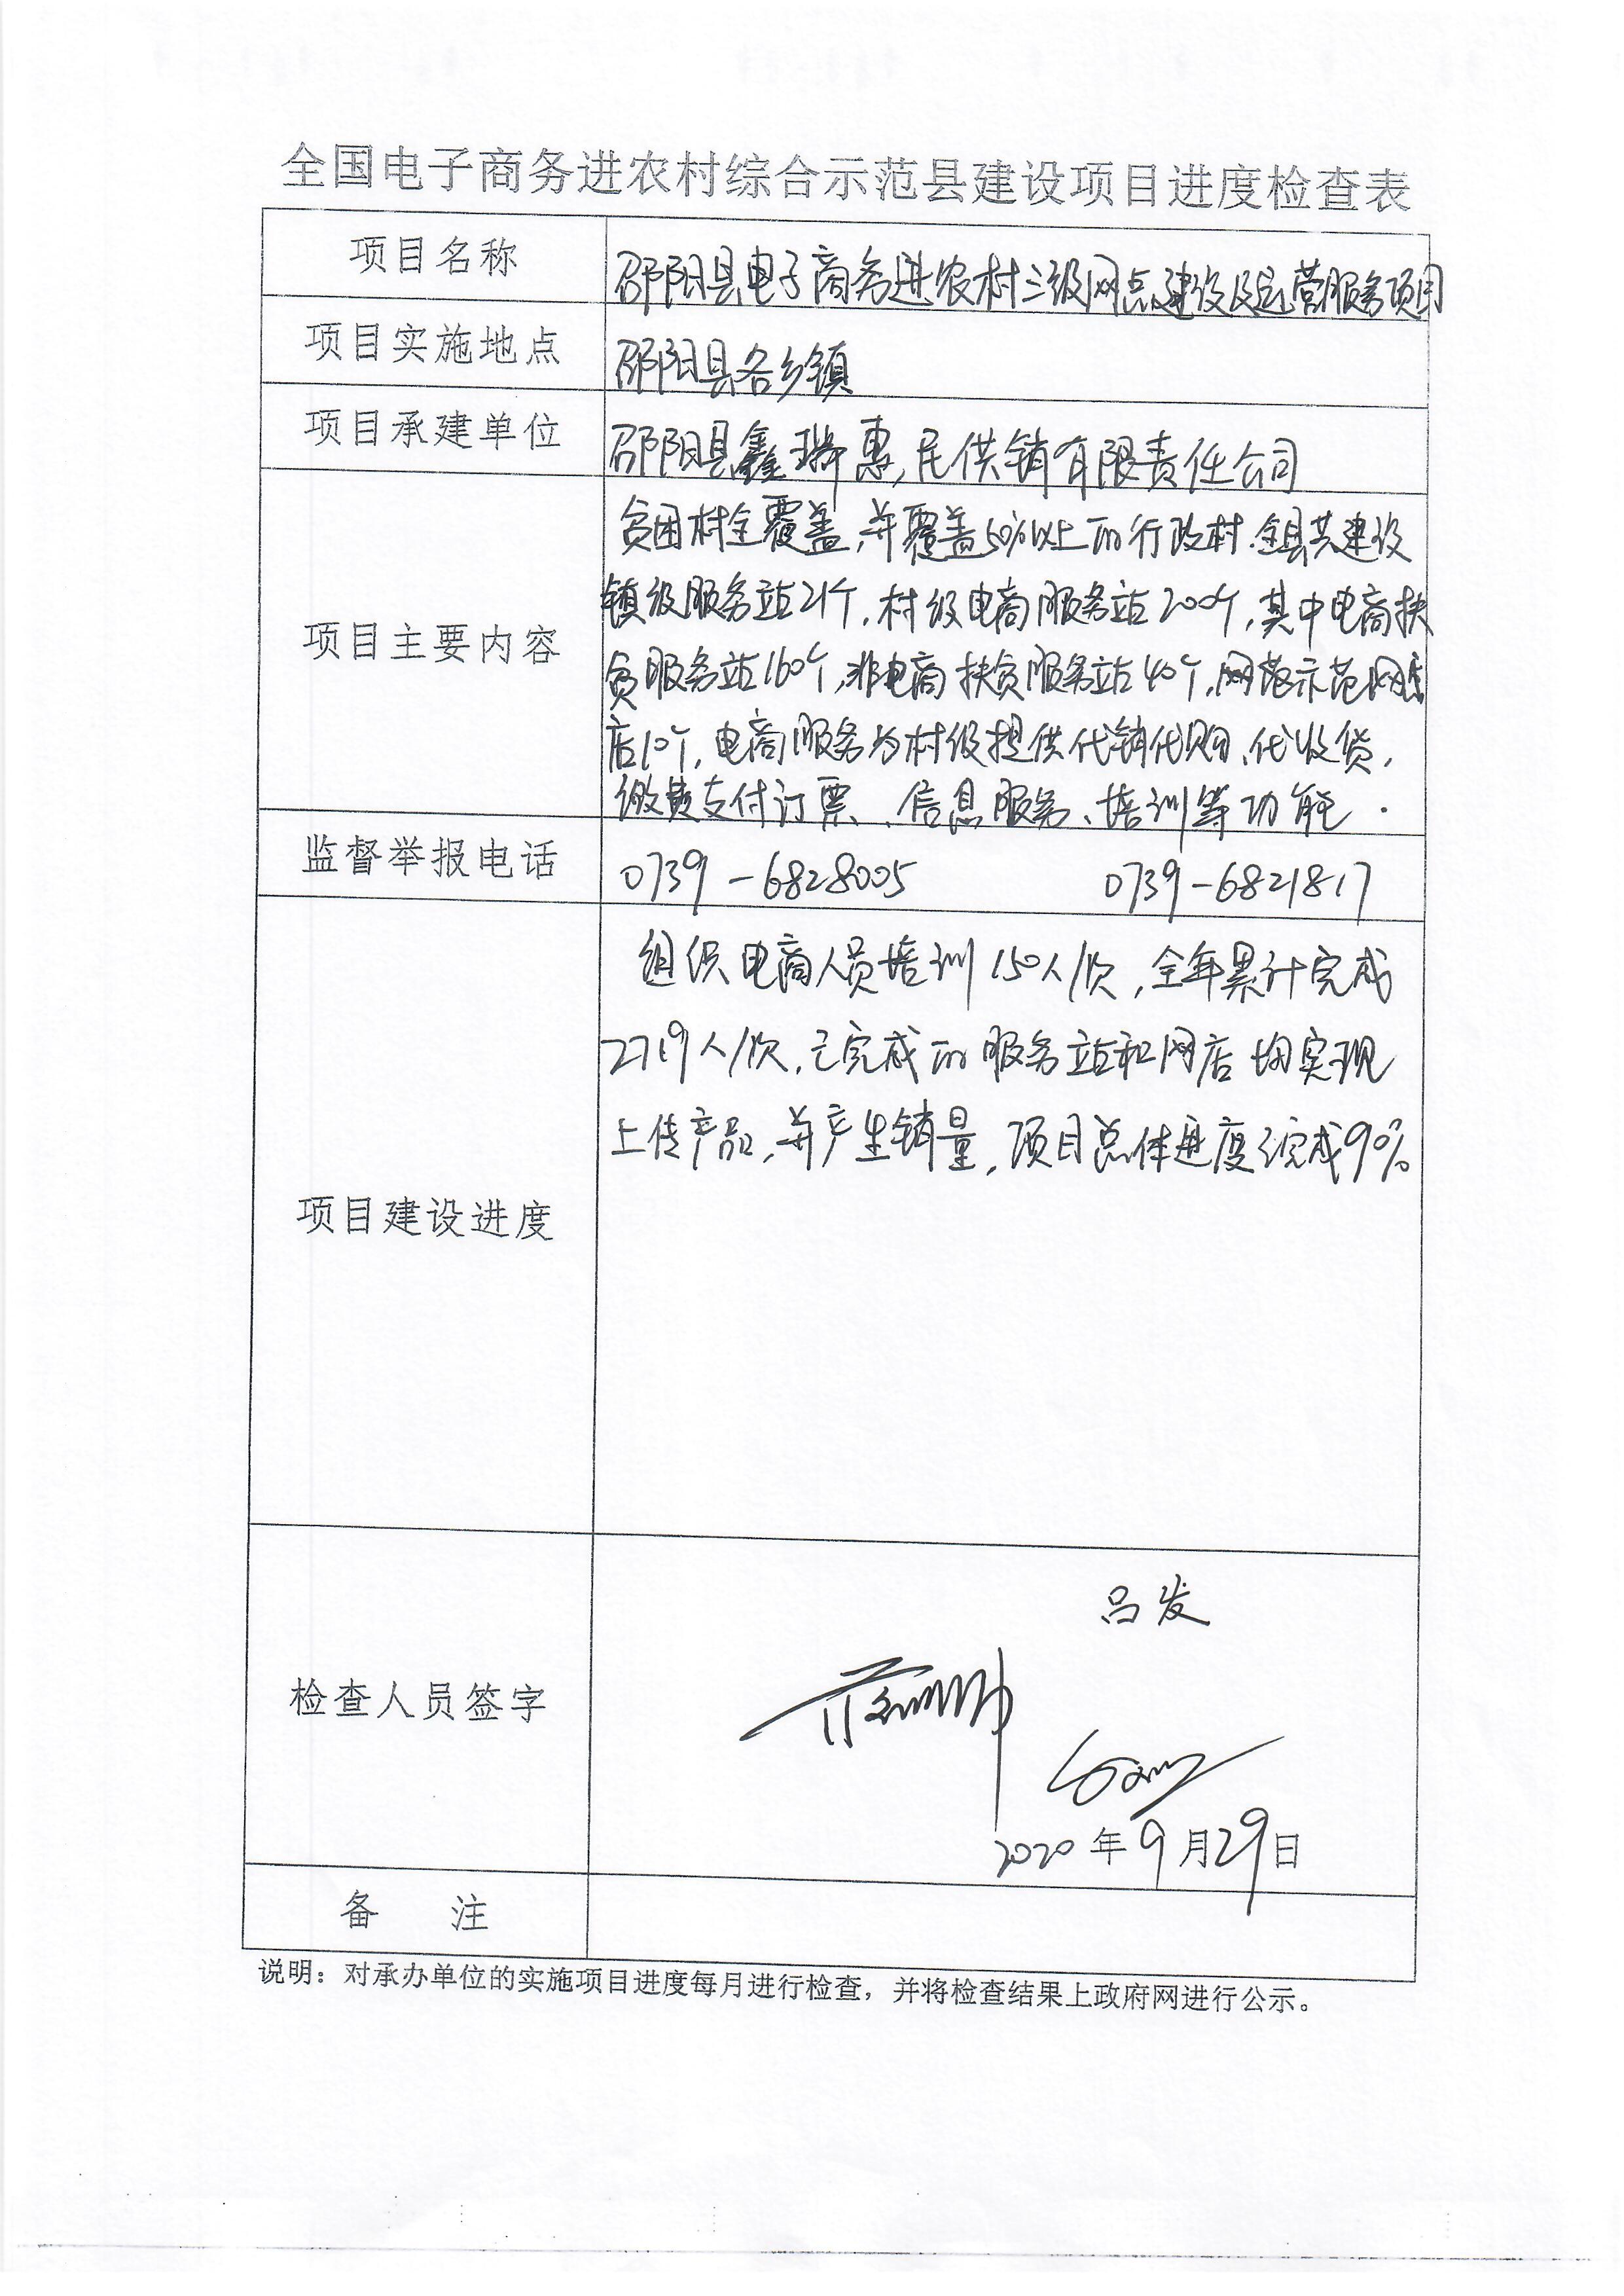 全国电子商务进农村综合示范县建设项目进度检查表
项目名称
邵阳县电子商务进农村三级网点建设及运营服务项目
项目实施地点
邵阳县各乡镇
项目承建单位
邵阳县鑫瑞惠民供销有限责任公司
项目主要内容
贫困村全覆盖,并覆盖50%以上的行政村.全县共建设
镇级服务站21个,村级电商服务站200个,其中电商扶
贫服务站160个,非电商扶贫服务站40个,网范示范网
店10个,电商服务为村级提供代销代购、代收货,
缴费支付订票、信息服务、培训等功能.
监督举报电话
0739-6828005 0739-6821817
项目建设进度
组织电商人员培训150人/次,全年累计完成
2719人/次,已完成的服务站和网店均实现
上传产品,并产生销量,项目总体进度完成90%
检查人员签字
吕发
2020年9月29日
备 注
说明：对承办单位的实施项目进度每月进行检查，并将检查结果上政府网进行公示。